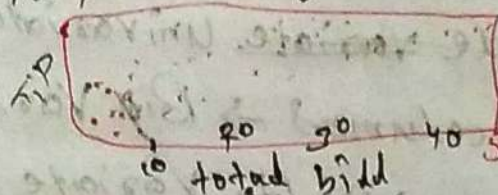 Tip
10 20 30 40
total bill